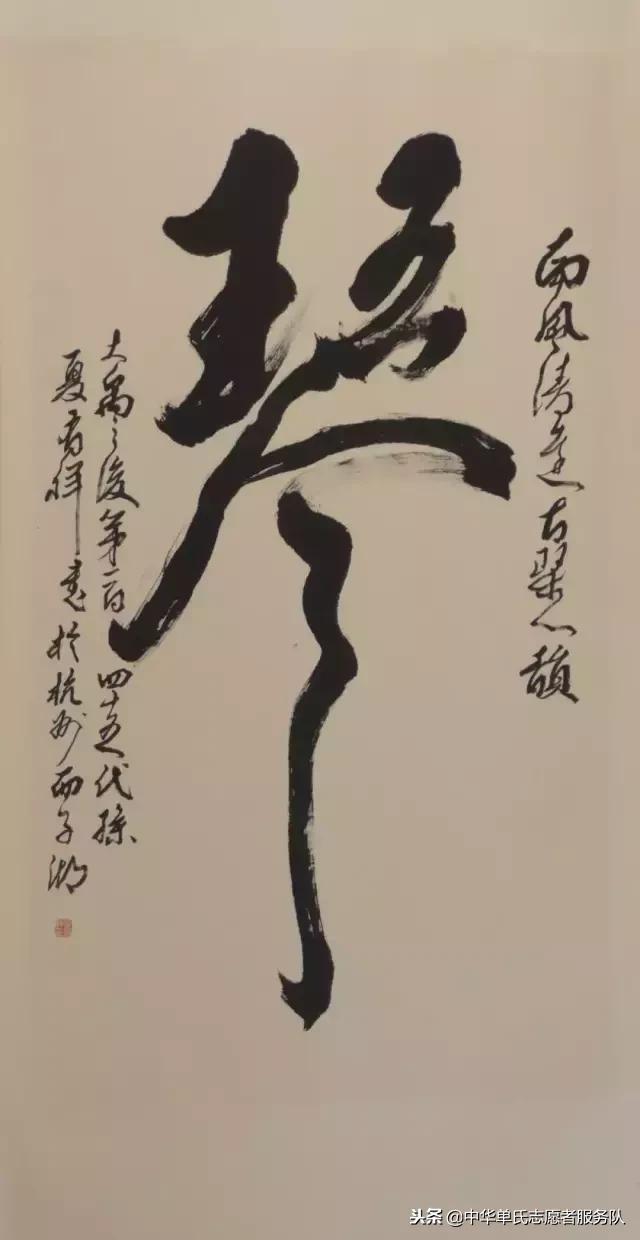 南風清遠古琴心韻
琴
大禹之後第一百四十五代孫
夏祥書於杭州西子湖
头条 @中华单氏志愿者服务队